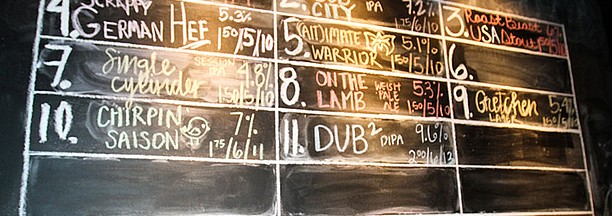 4. SCRAPPY
GERMAN HEF 5.3%
1 50/5/10
CITY IPA 7.2%
1 75/6/11
3. Roast Beast 6%
USA Stout
5. (AIT)MATE
WARRIOR 5.1%
1 50/5/10
6.
7. Single
Cylinder
SESSION
IPA 4.8%
1 50/5/10
8. ON THE
LAMB
WELSH
PALE
ALE
5.3%
1 50/5/10
9. Gretchen 5.4%
10. CHIRPIN
SAISON 7%
1 75/6/11
11. DUB² DIPA 9.6%
2 00/6/12